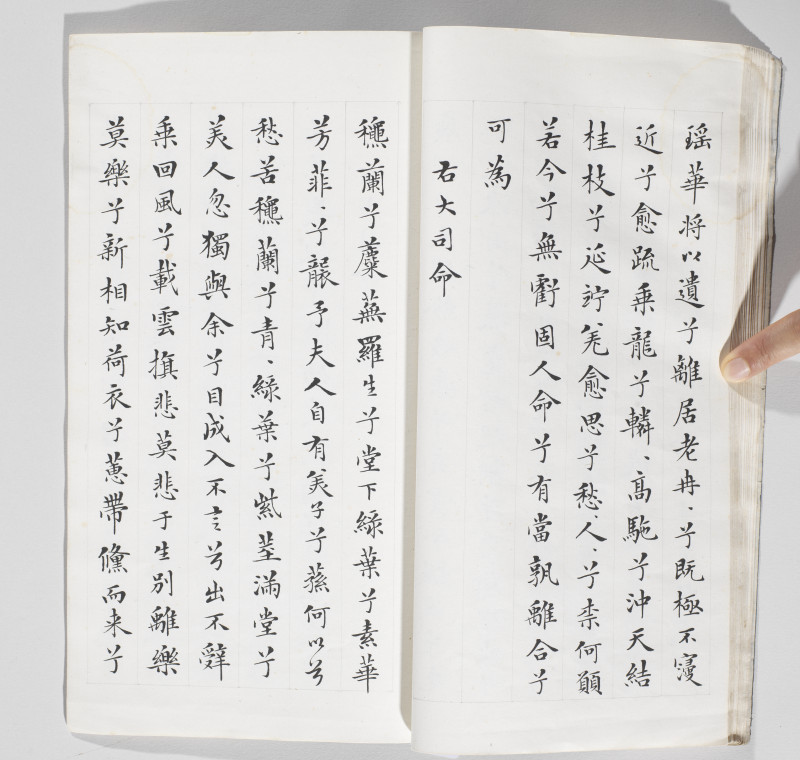 瑶華将以遺兮離居老冉、兮既極不寖
近兮愈疏乗龍兮轔、高駞兮沖天結
桂枝兮延竚羌愈思兮愁、人、兮柰何願
若今兮無虧固人命兮有當孰離合兮
可為
右大司命
龝蘭兮蘪蕪羅生兮堂下緑葉兮素華
芳菲、兮襲予夫人自有美子兮蓀何以兮
愁苦龝蘭兮青、緑葉兮紫莖滿堂兮
美人忽獨與余兮目成入不言兮出不辤
乗回風兮載雲旗悲莫悲于生別離樂
莫樂兮新相知荷衣兮蕙帶儵而来兮